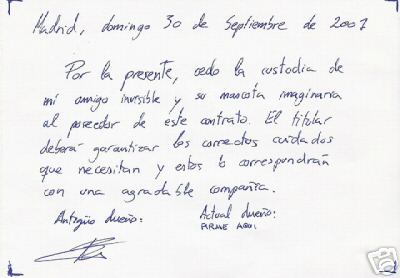 Madrid, domingo 30 de Septiembre de 2007
Por la presente, cedo la custodia de
mi amigo invisible y su mascota imaginaria
al poseedor de este contrato. El titular
deberá garantizar los correctos cuidados
que necesitan y estos le correspondrán
con una agradable compañía.
Antigüo dueño: Actual dueño:
FIRME AQUI